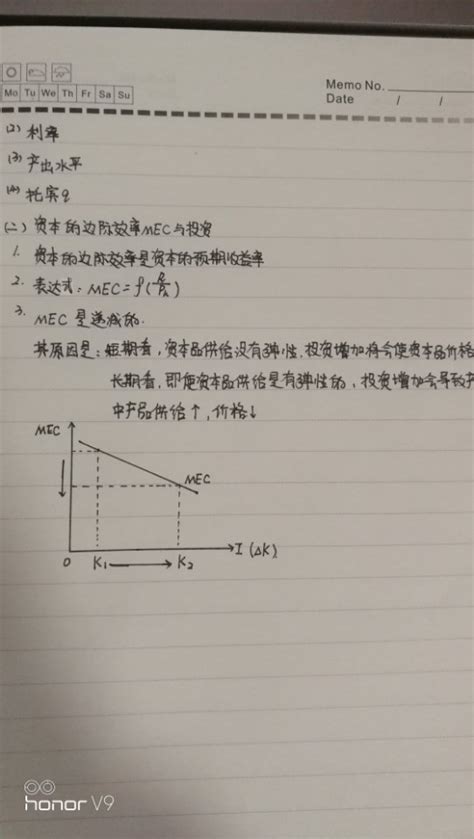 Mo Tu We Th Fr Sa Su
Memo No.
Date / /
(2) 利率
(3) 产出水平
(4) 托宾q
(二) 资本的边际效率MEC与投资
1. 资本的边际效率是资本的预期收益率
2. 表达式: MEC = f(
3. MEC是递减的.
其原因是: 短期看, 资本品供给没有弹性, 投资增加将会使资本品价格
长期看, 即使资本品供给是有弹性的, 投资增加会导致
中产品供给↑, 价格↓
MEC
MEC
I (ΔK)
0 K₁ → K₂
honor V9